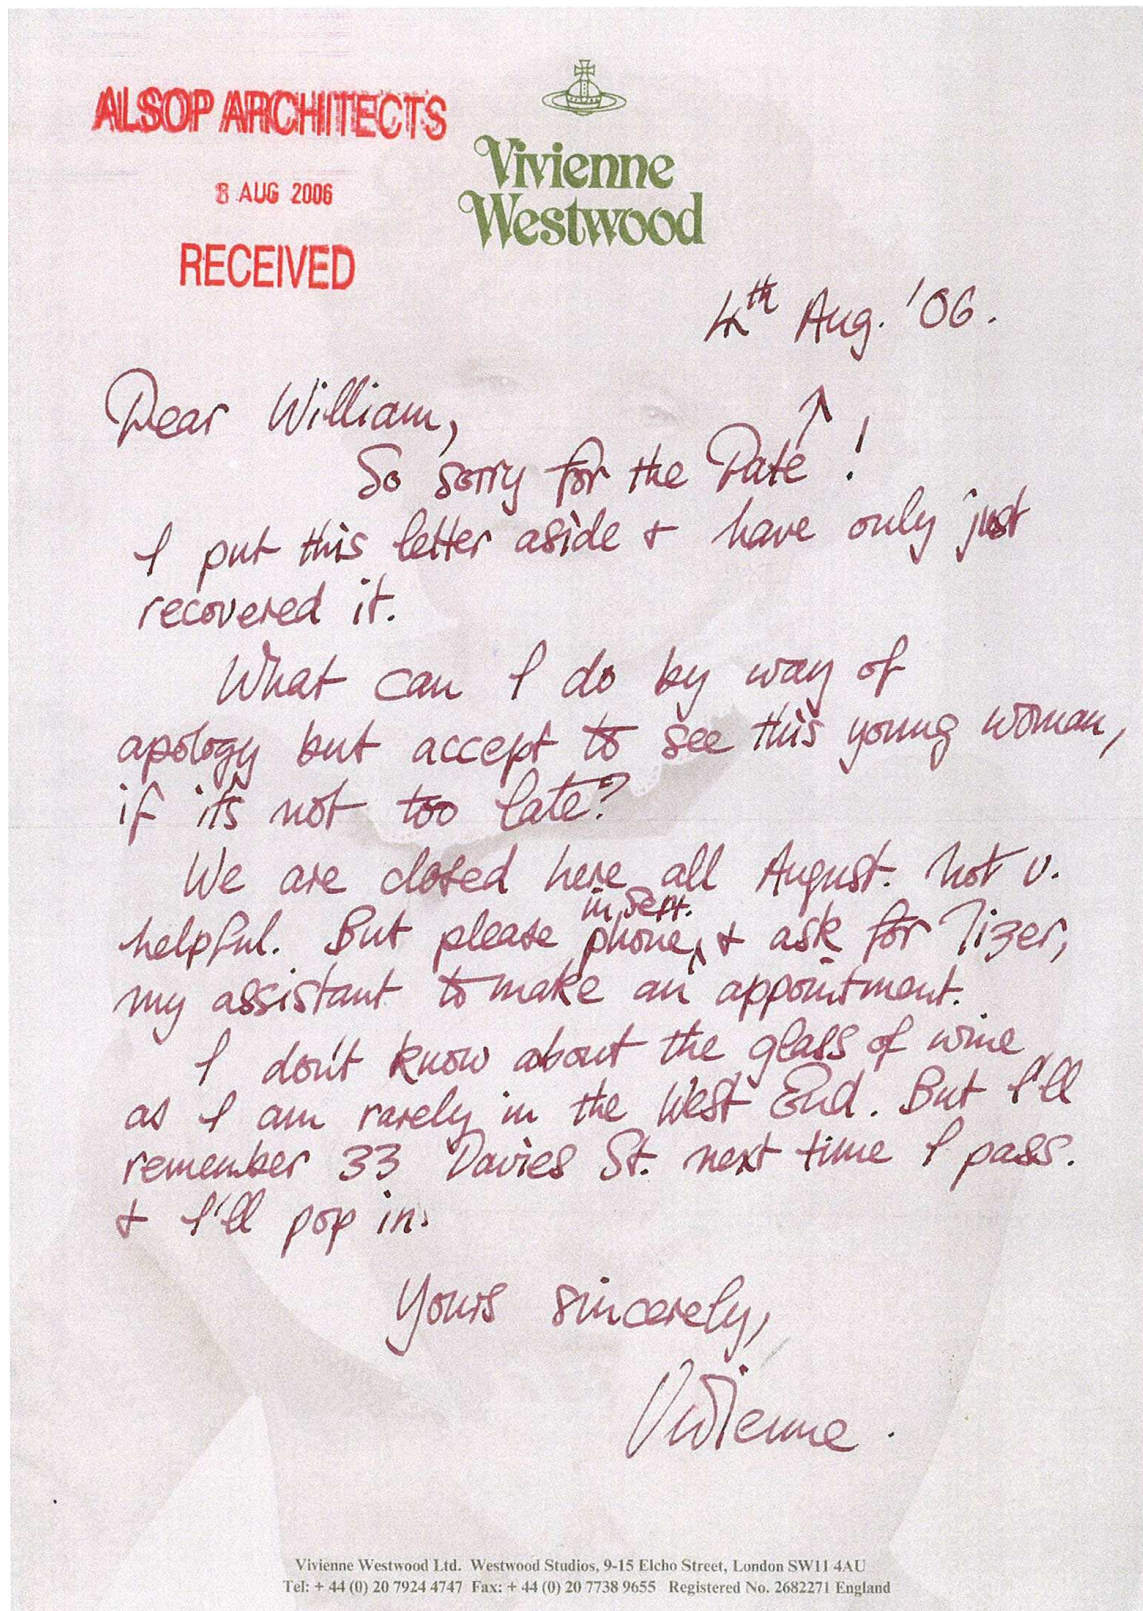 ALSOP ARCHITECTS
8 AUG 2006
RECEIVED
Vivienne
Westwood
4th Aug. '06.
Dear William,
So sorry for the Date !
I put this letter aside & have only just
recovered it.
What can I do by way of
apology but accept to see this young woman,
if it's not too late?
We are closed here all August. Not v.
helpful. But please phone, in Sept. & ask for Tizer,
my assistant to make an appointment.
I don't know about the glass of wine
as I am rarely in the West End. But I'll
remember 33 Davies St. next time I pass.
& I'll pop in.
Yours sincerely,
Vivienne.
Vivienne Westwood Ltd. Westwood Studios, 9-15 Elcho Street, London SW11 4AU
Tel: + 44 (0) 20 7924 4747 Fax: + 44 (0) 20 7738 9655 Registered No. 2682271 England